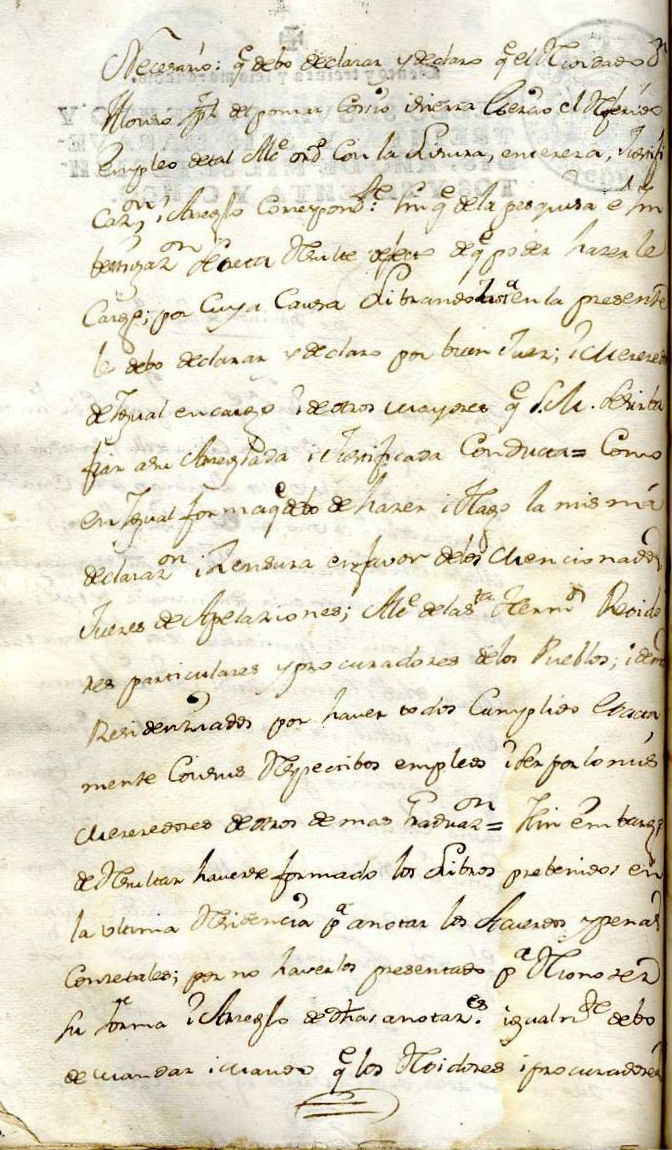 Necesario: q̃ debo declarar y declaro q̃ el Nividado Dⁿ
Alonso del pomar Corrio
empleo de tal Alcᵉ ordº Con la Lisura, entereza, i Justifi
Cazᵒⁿ, i Arreglo Correspondᵗᵉ: sin q̃ de la pesquisa e Yn
bestigazᵒⁿ Secreta Resulte defecto de q̃ poder hazerle
Cargo; por Cuya Causa Librandolo en la presente
le debo declarar y declaro por buen Juez; i Merezedor
de Igual encargo i de otros mayores q̃ S.M. Se sirba
fiar a su Arreglada i Justificada Conducta = Como
en Igual forma q̃ debo de hazer i Hago la misma
declarazᵒⁿ i Zensura en favor de los Mencionados
Juezes de Apelaziones; Alcᵉˢ de la Sᵗᵃ Hermᵈ Rexido
res particulares y procuradores de los Pueblos; i demas
Residenziados por haver todos Cumplido Exacta
mente Con sus Respectibos empleos i ser por lo mismo
Merezedores de otros de mas Graduazᵒⁿ = Sin embargo
de Resultar haverse formado los Libros prebenidos en
la ultima Residencia pª anotar los Acuerdos y penas
Conzexales; por no haverlos presentado pª Reconozer
su forma i Arreglo de dhas anotazᵉˢ. igualmᵗᵉ debo
de mandar i mando q̃ los Rexidores i procuradores